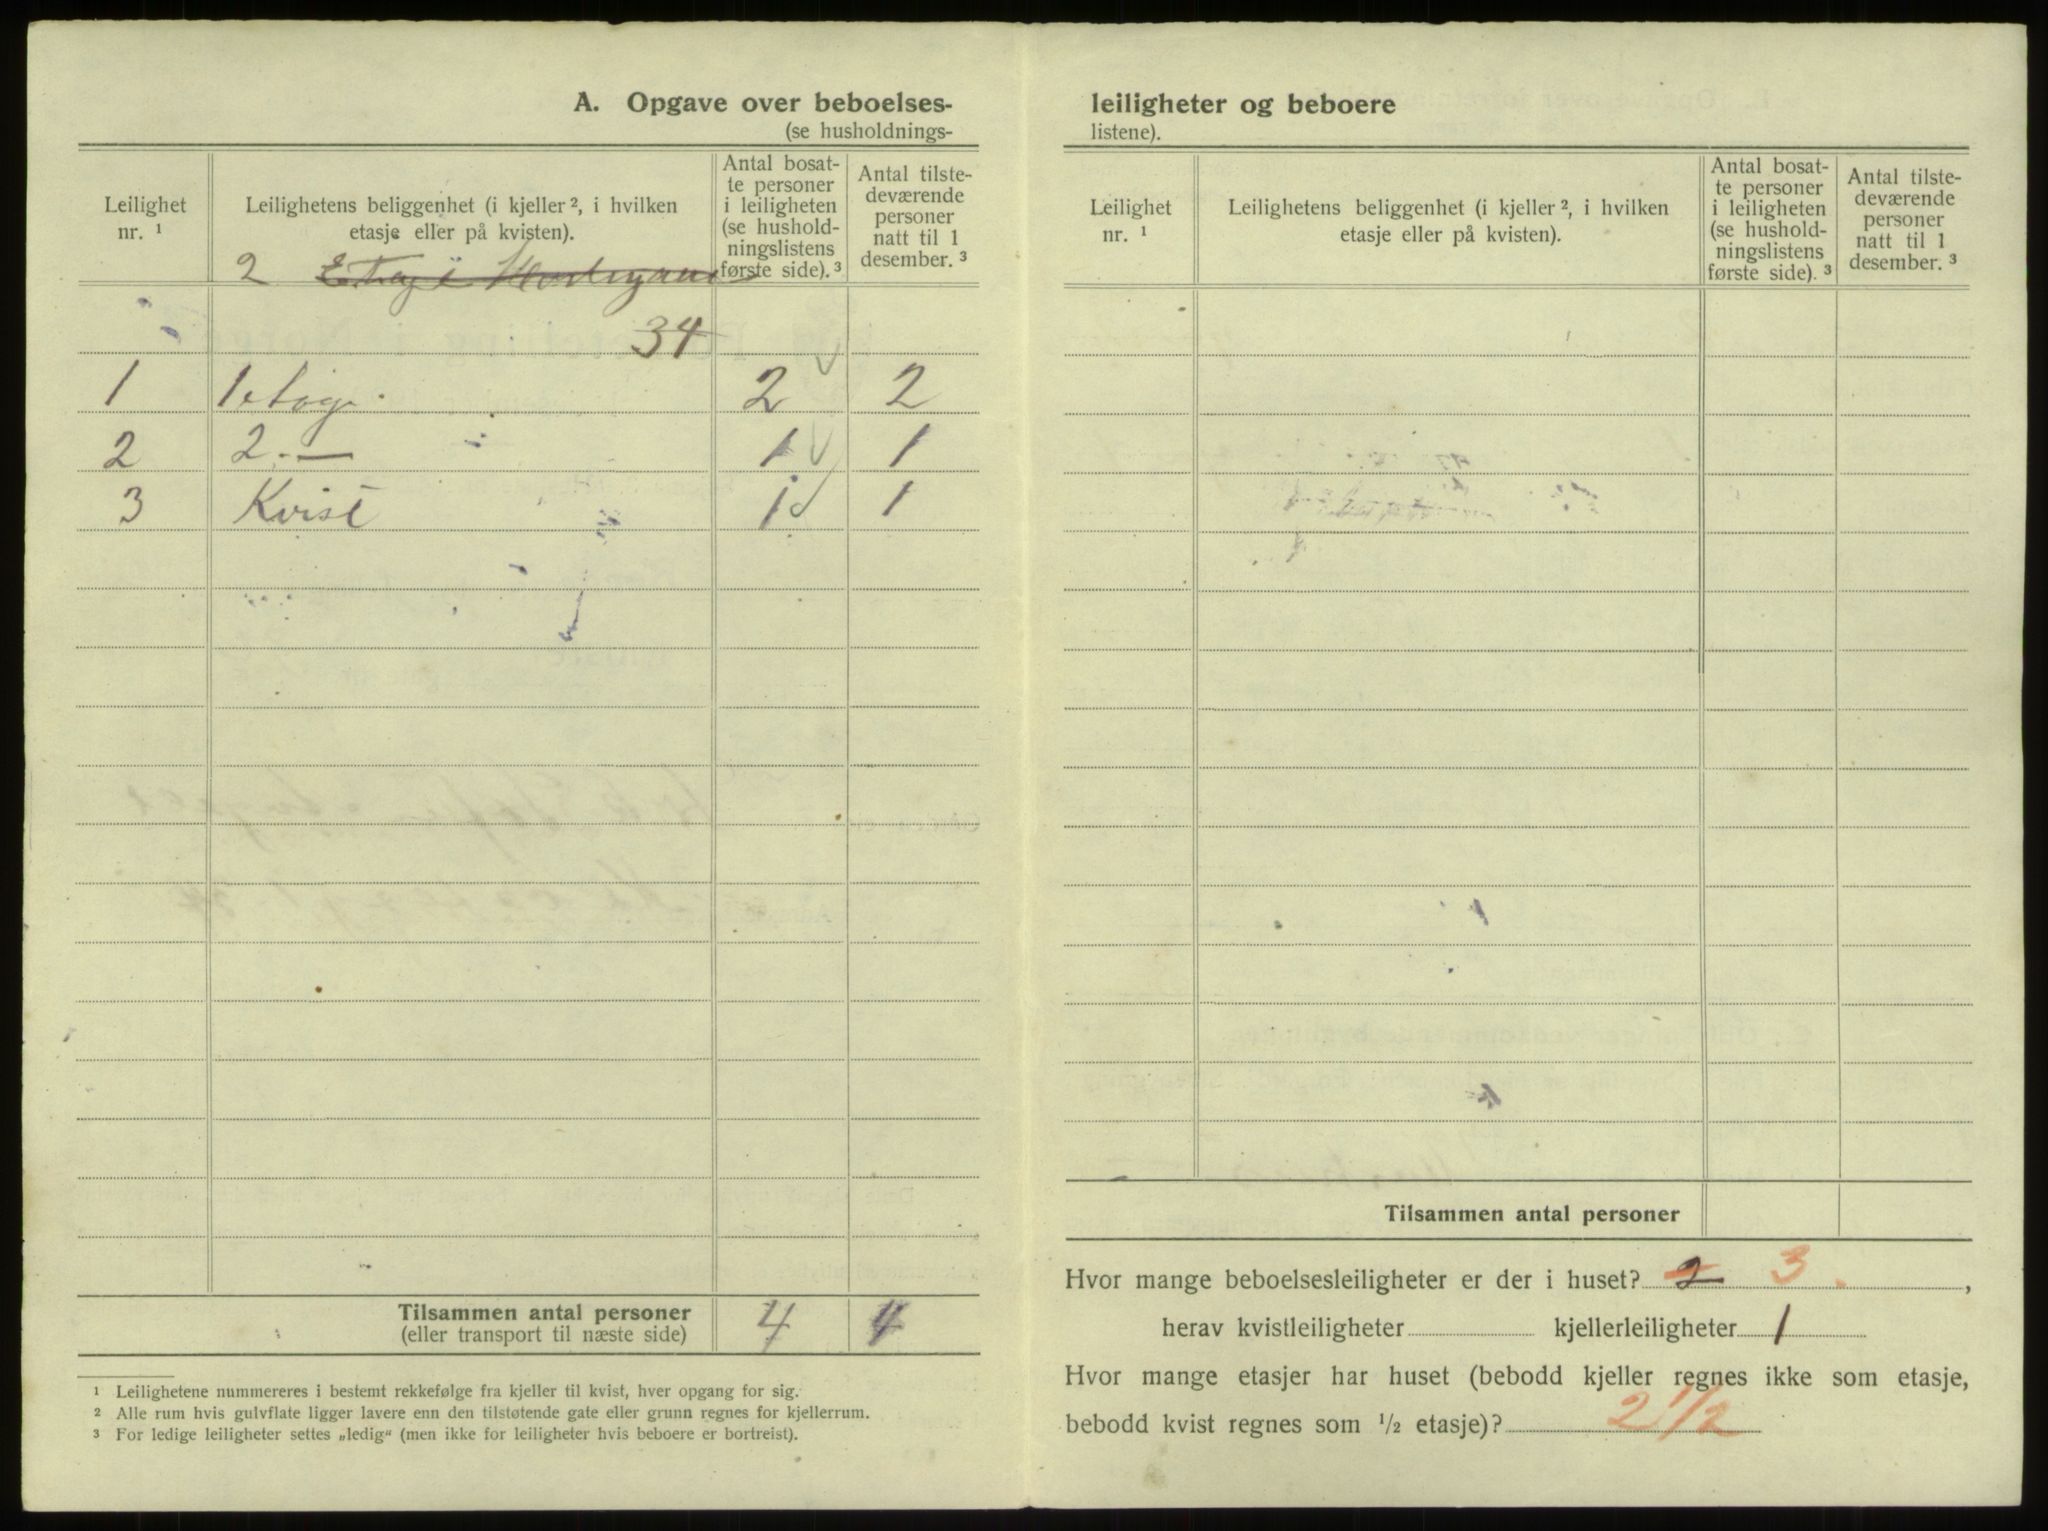 A. Opgave over beboelses-
(se husholdnings-
Leilighet nr. ¹
Leilighetens beliggenhet (i kjeller ², i hvilken etasje eller på kvisten).
Antal bosat-
te personer
i leiligheten
(se hushold-
ningslistens
første side). ³
Antal tilste-
deværende
personer
natt til 1
desember. ³
2
34
1 1 etag. 2 2
2 2.— 1 1
3 Kvist 1 1
Tilsammen antal personer 4 4
(eller transport til næste side)
¹ Leilighetene nummereres i bestemt rekkefølge fra kjeller til kvist, hver opgang for sig.
² Alle rum hvis gulvflate ligger lavere enn den tilstøtende gate eller grunn regnes for kjellerrum.
³ For ledige leiligheter settes „ledig“ (men ikke for leiligheter hvis beboere er bortreist).
leiligheter og beboere
listene).
Leilighet nr. ¹
Leilighetens beliggenhet (i kjeller ², i hvilken etasje eller på kvisten).
Antal bosat-
te personer
i leiligheten
(se hushold-
ningslistens
første side). ³
Antal tilste-
deværende
personer
natt til 1
desember. ³
Tilsammen antal personer
Hvor mange beboelsesleiligheter er der i huset? 2 3.,
herav kvistleiligheter kjellerleiligheter 1
Hvor mange etasjer har huset (bebodd kjeller regnes ikke som etasje,
bebodd kvist regnes som ½ etasje)? 2 1/2